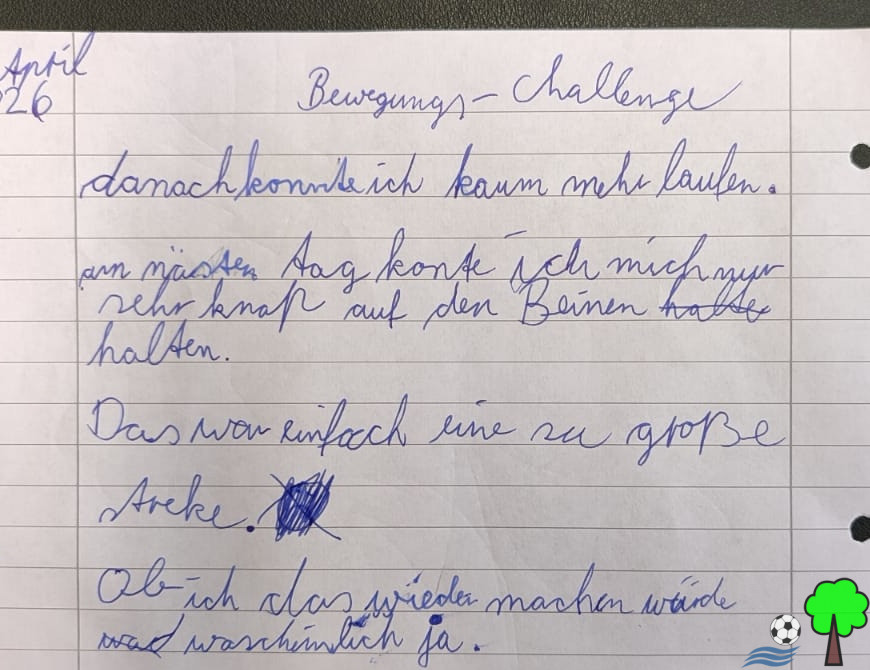 April
26
Bewegungs-Challenge
danach konnte ich kaum mehr laufen.
am nästen tag konte ich mich nur
sehr knap auf den Beinen halte
halten.
Das war einfach eine zu große
streke.
Ob ich das wieder machen würde
wad wascheinlich ja.